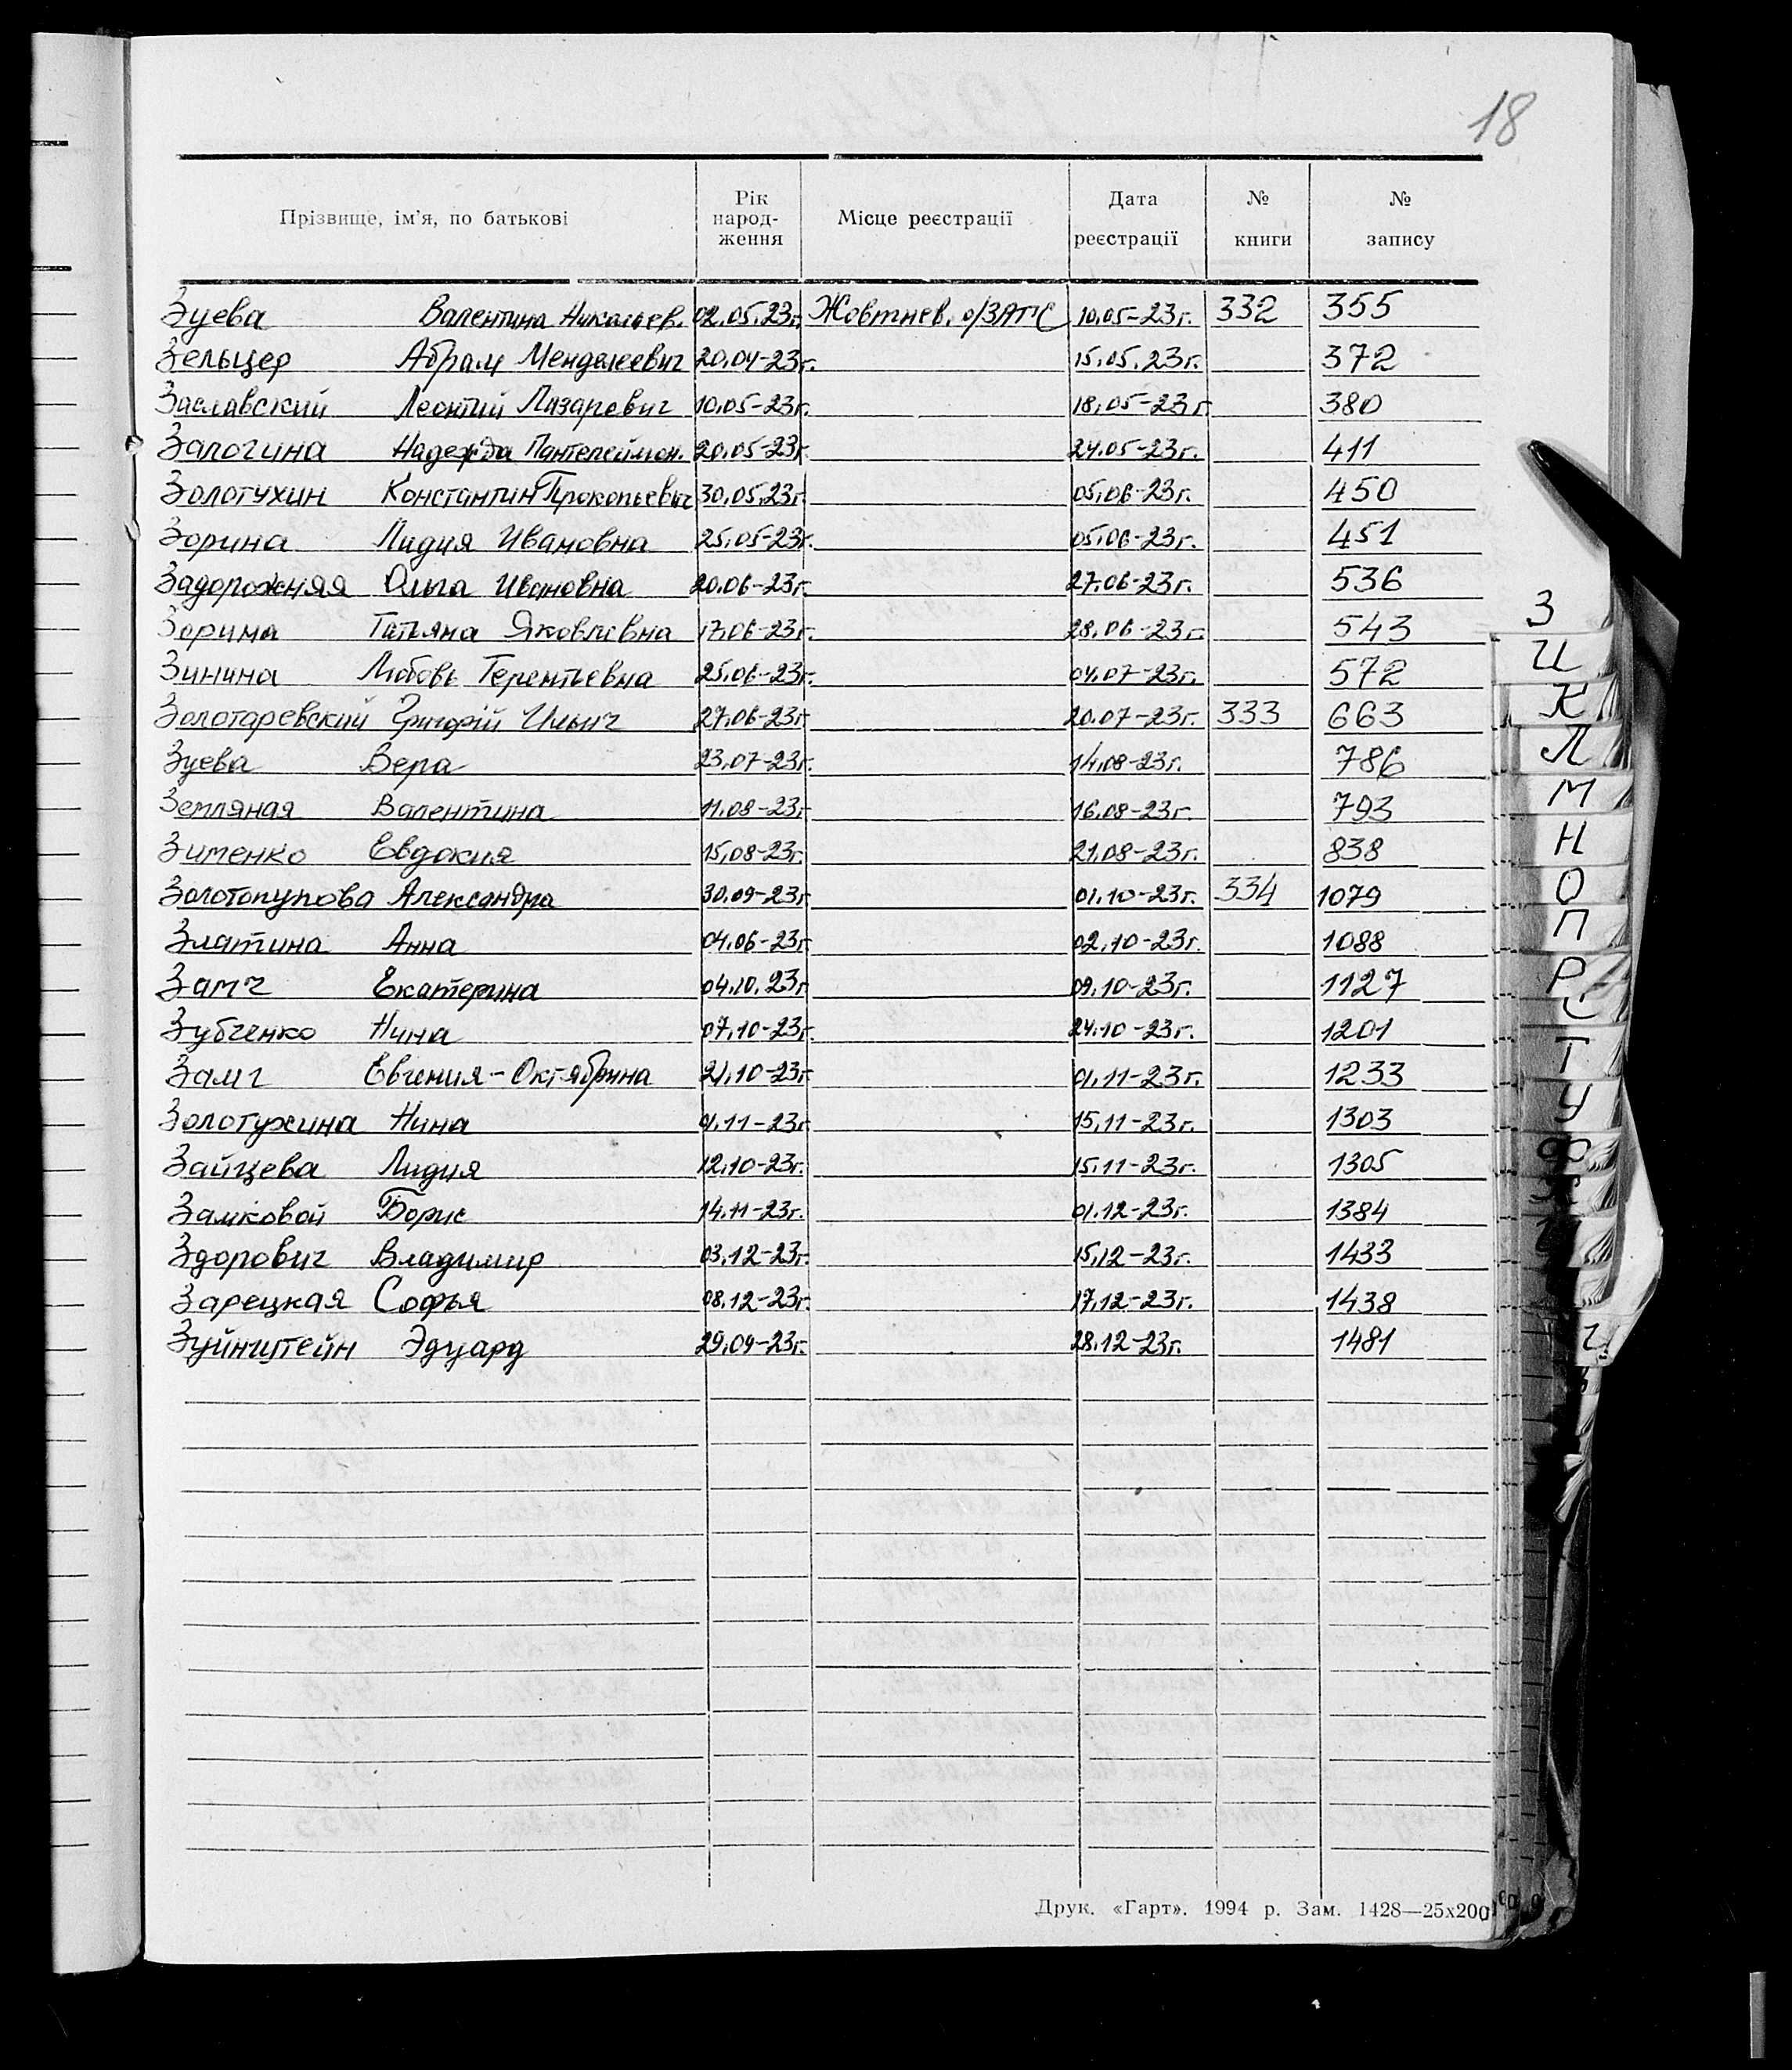 18
Прізвище, ім'я, по батькові Рік народ- ження Місце реєстрації Дата реєстрації № книги № запису
Зуева Валентина Николаев. 02.05.23г. Жовтнев. о/ЗАГС 10.05-23г. 332 355
Зельцер Абрам Менделеевич 20.04-23г. 15.05.23г. 372
Заславский Леонтий Лазаревич 10.05-23г. 18.05-23г 380
Залогина Надежда Пантелеймон. 20.05-23г. 24.05-23г. 411
Золотухин Константин Прокопьевич 30.05.23г. 05.06-23г. 450
Зорина Лидия Ивановна 25.05-23г. 05.06-23г. 451
Задорожняя Ольга Ивановна 20.06-23г. 27.06-23г. 536
Зорина Татьяна Яковлевна 17.06-23г. 28.06-23г. 543
З
Зинина Любовь Терентьевна 25.06-23г. 04.07-23г. 572
И
Золотаревский Григорій Ильич 27.06-23г. 20.07-23г. 333 663
К
Зуева Вера 23.07-23г. 14.08-23г. 786
Л
Земляная Валентина 11.08-23г 16.08-23г. 793
М
Зименко Евдокия 15.08-23г. 21.08-23г. 838
Н
Золотопупова Александра 30.09-23г. 01.10-23г. 334 1079
О
Златина Анна 04.06-23г. 02.10-23г. 1088
П
Замч Екатерина 04.10.23г 09.10-23г. 1127
Р
С
Зубченко Нина 07.10-23г. 24.10-23г. 1201
Т
Замч Евгения-Октябрина 21.10-23г 01.11-23г. 1233
У
Золотухина Нина 01.11-23г. 15.11-23г. 1303
Ф
Зайцева Лидия 12.10-23г. 15.11-23г. 1305
Замковой Борис 14.11-23г. 01.12-23г. 1384
Здорович Владимир 03.12-23г. 15.12-23г. 1433
Зарецкая Софья 08.12-23г. 17.12-23г. 1438
Зуйнштейн Эдуард 29.09-23г. 28.12-23г. 1481
Друк. «Гарт». 1994 р. Зам. 1428—25x200